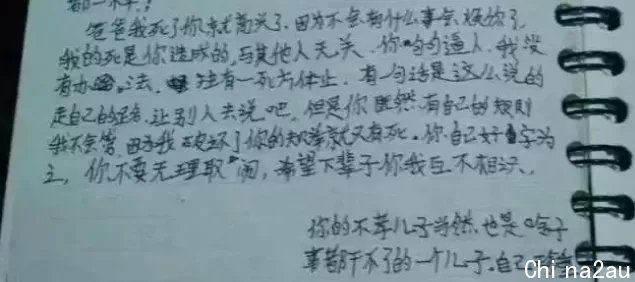 爸爸我死了你就高兴了.因为不会有什么事会烦你了,
我的死是你造成的,与其他人无关.你咄咄逼人.我没
有办法,独有一死方休止.有一句话是这么说的
走自己的路.让别人去说吧.但是你既然有自己的规则
我不会管,因为我破坏了你的规矩就只有死.你自己好自为
之,你不要无理取闹,希望下辈子你我互不相识.
你的不孝儿子当然也是啥子
事都干不了的一个儿子.自己
Chi na2au